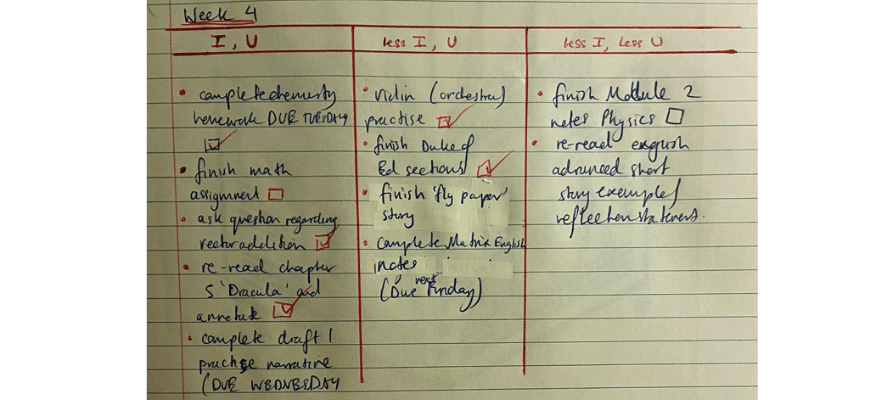 Week 4
I, U
less I, U
less I, Less U
• complete chemistry
homework DUE TUESDAY
• finish math
assignment
• ask question regarding
vector addition
• re-read chapter
5 'Dracula' and
annotate
• complete draft 1
practise narrative
(DUE WEDNESDAY
• violin (orchestra)
practise
• finish Duke of
Ed sections
• finish 'fly paper'
story
• complete Matrix English
notes
(Due next Friday)
• finish Module 2
notes Physics
• re-read english
advanced short
story examples/
reflection statement.